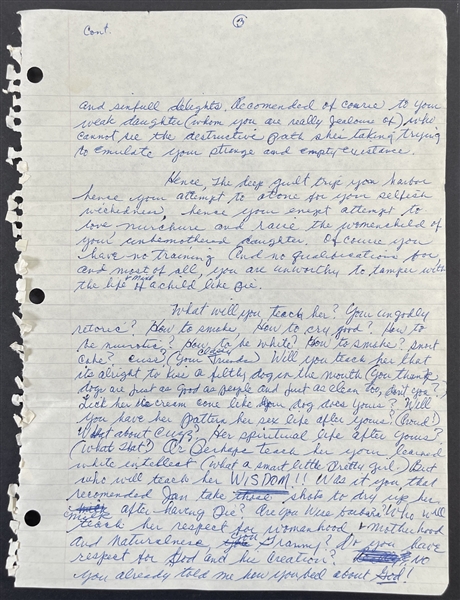 Cont. 3
and sinfull delights. Recomended of course to your
weak daughter (whom you are really jealous of) who
cannot see the destructive path she's taking trying
to emulate your strange and empty existance.
Hence, The deep guilt trip you harbor
hence your attempt to atone for your selfish
wickedness, hence your enept attempt to
love nurchure and raise the womanchild of
your unbemothered daughter. Of course you
have no training And no qualifications for,
and most of all, you are unworthy to tamper with
the life & mind of a child like
What will you teach her? Your ungodly
retoric? How to smoke, How to cry good? How to
be neurotic? How to be white? How to smoke? snort
coke? curse? (your friends) Will you teach her that
its alright to kiss a filthy dog in the mouth (You think
dogs are just as good as people and just as clean too, dont you?)
Lick her ice cream cone like your dog does yours? Will
you have her pattern her sex life after yours?
What about Her spiritual life after yours?
(What's that?) Or Perhaps teach her your learned
white intellect (What a smart little pretty girl) But
who will teach her WISDOM!! Was it you that
recomended Jan take shots to dry up her
milk after having Are you Who will
teach her respect for womanhood & Motherhood
and Naturalness Granny? Do you have
respect for God and his Creation? NO
you already told me how you feel about God!